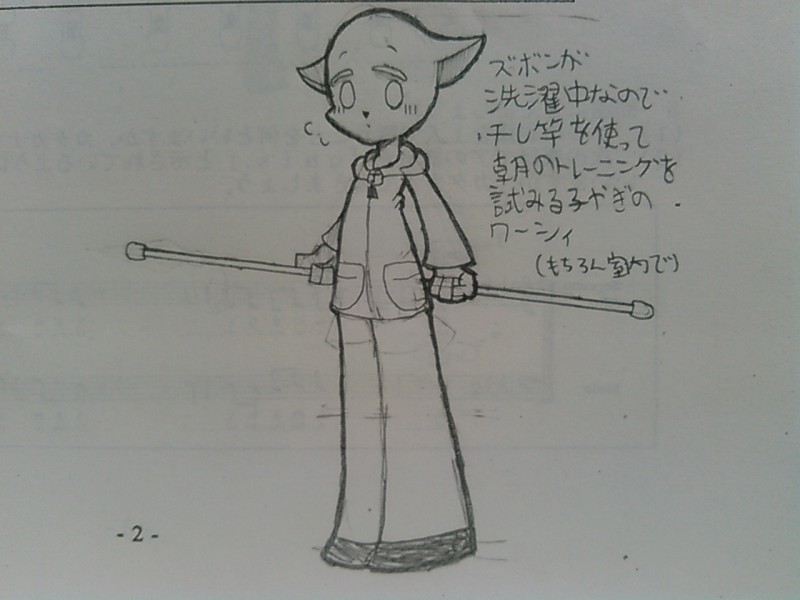 ズボンが
洗濯中なので
干し竿を使って
朝のトレーニングを
試みる子やぎの
ワーシィ
(もちろん室内で)
- 2 -